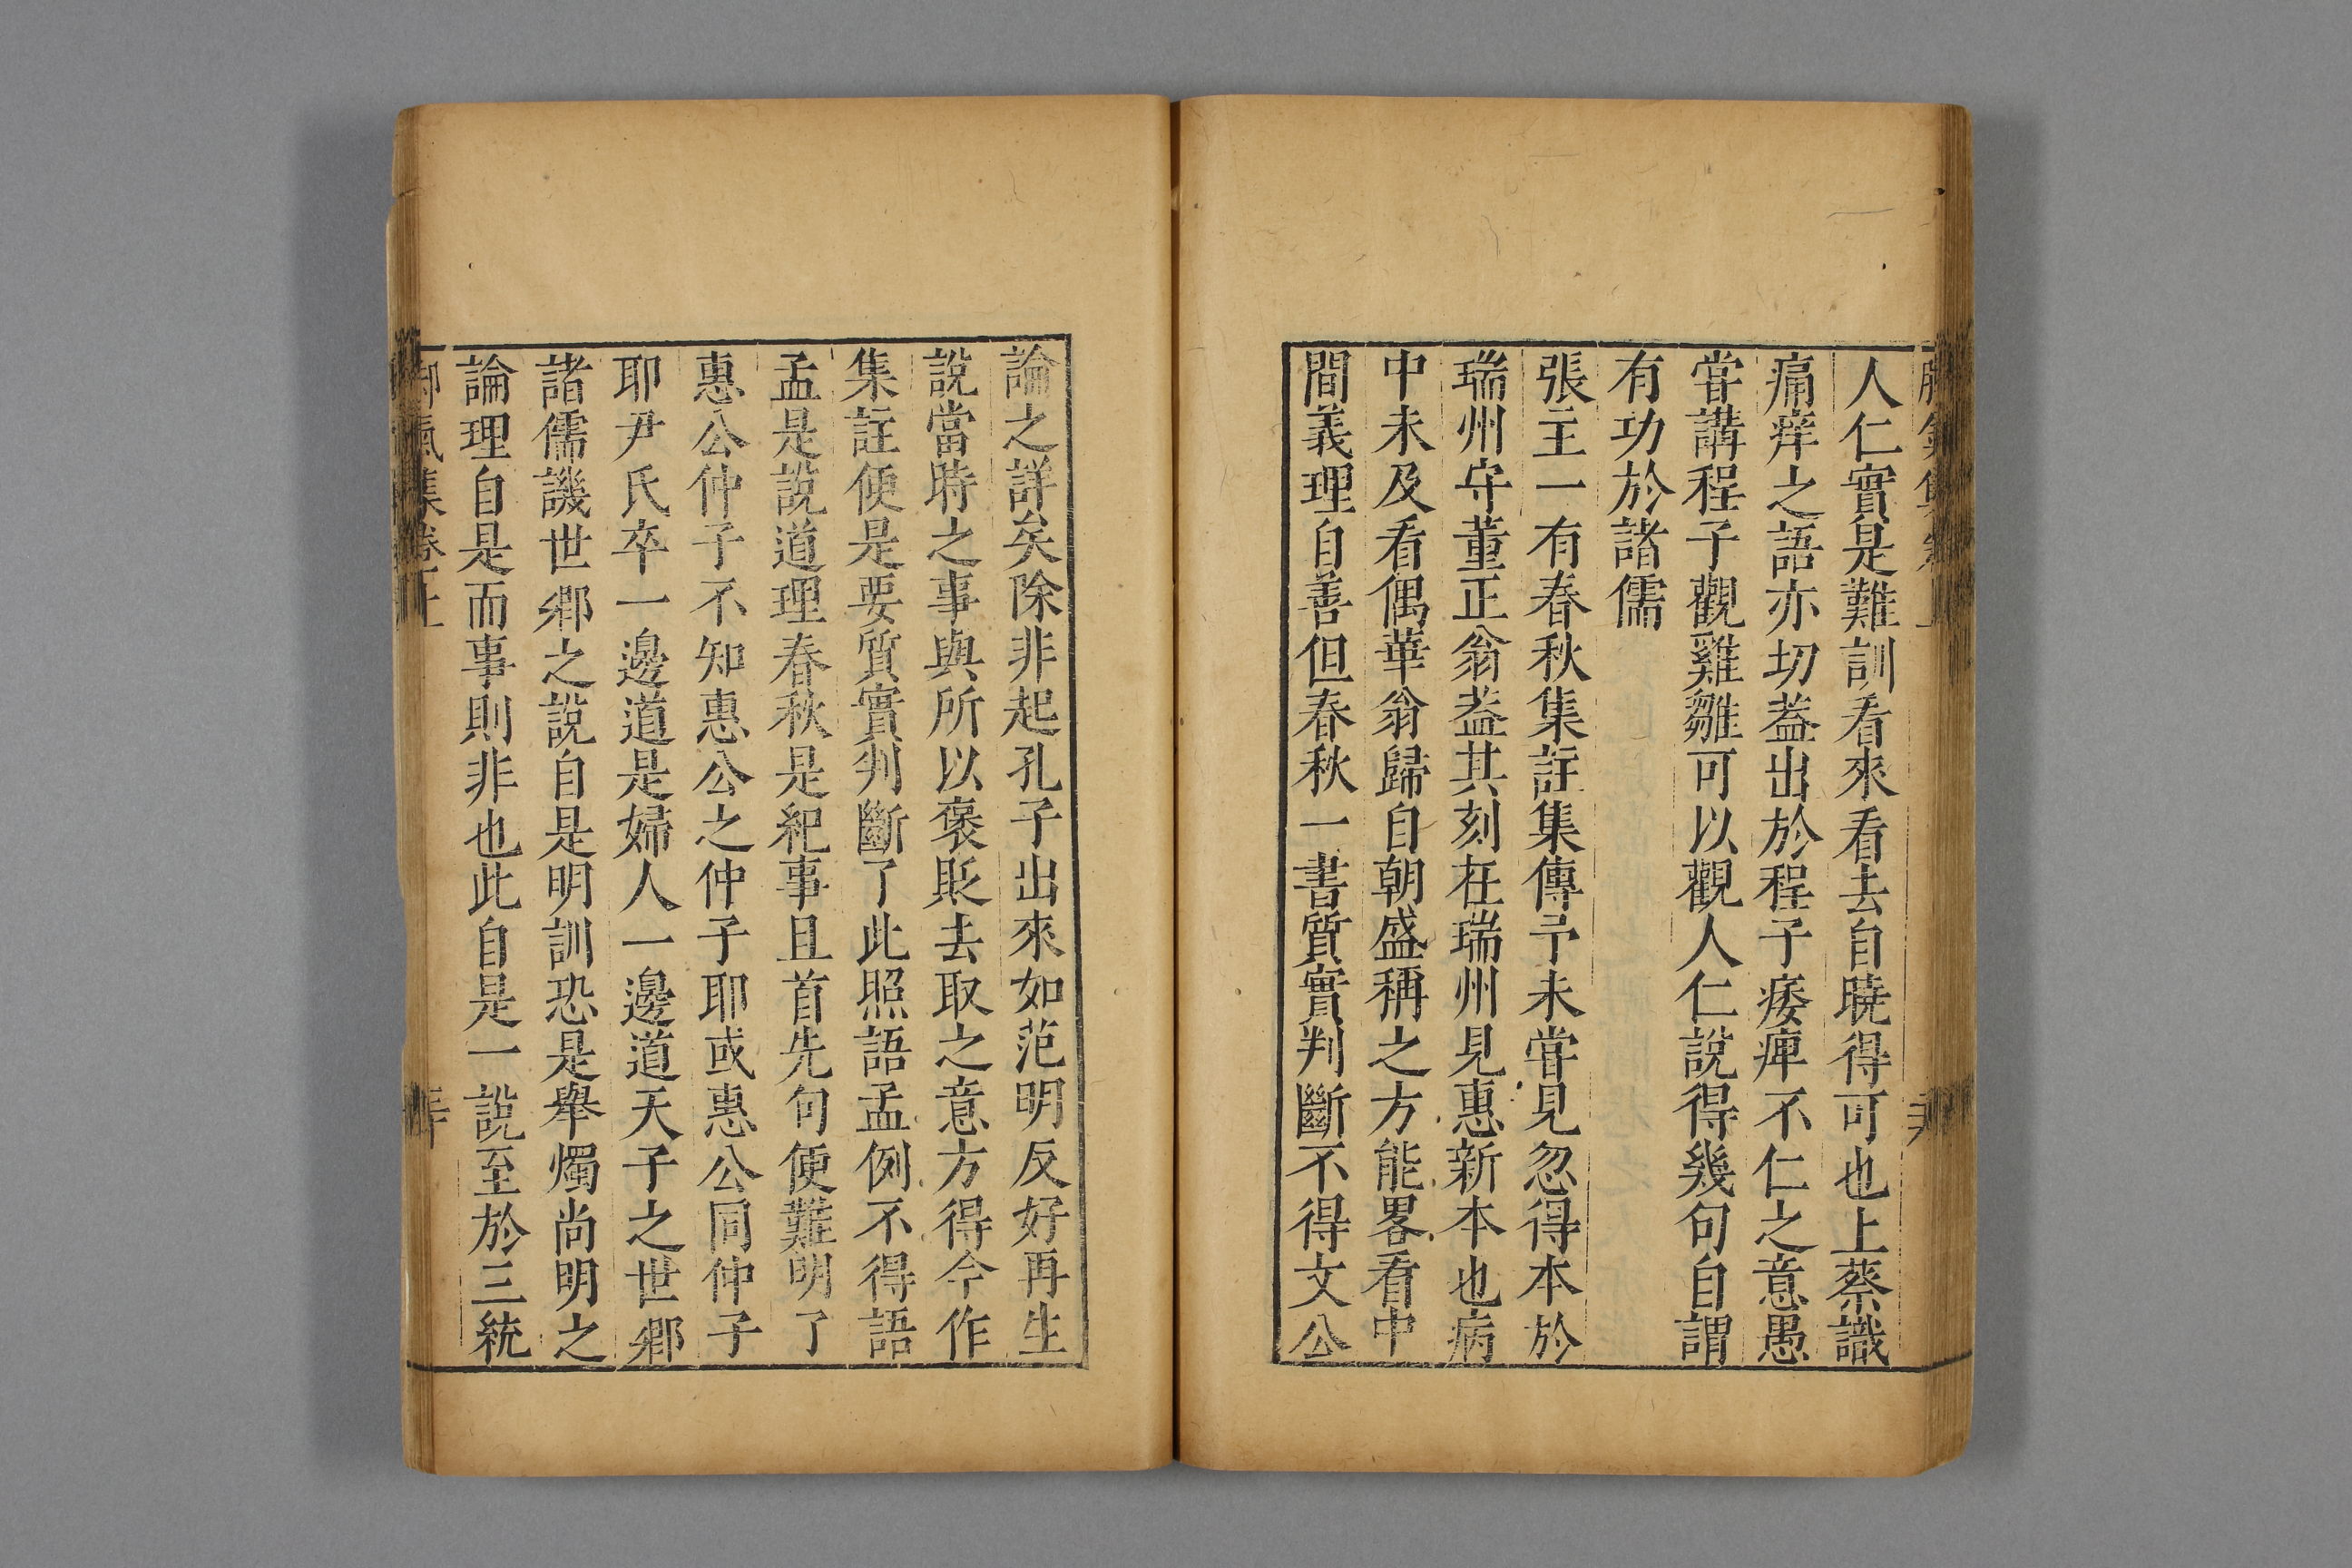 人仁實是難訓看來看去自曉得可也上蔡識
痛痒之語亦切葢出於程子痿痺不仁之意愚
甞講程子觀雞雛可以觀人仁說得幾句自謂
有功於諸儒
張主一有春秋集註集傳予未甞見忽得本於
瑞州守董正翁葢其刻在瑞州見惠新本也病
中未及看偶華翁歸自朝盛稱之方能畧看中
間義理自善但春秋一書質實判斷不得文公
論之詳矣除非起孔子出來如范明反好再生
說當時之事與所以褒貶去取之意方得今作
集註便是要質實判斷了此照語孟例不得語
孟是說道理春秋是紀事且首先句便難明了
惠公仲子不知惠公之仲子耶或惠公同仲子
耶尹氏卒一邊道是婦人一邊道天子之世卿
諸儒譏世卿之說自是明訓恐是舉燭尚明之
論理自是而事則非也此自是一說至於三統
脚氣集卷上
三十